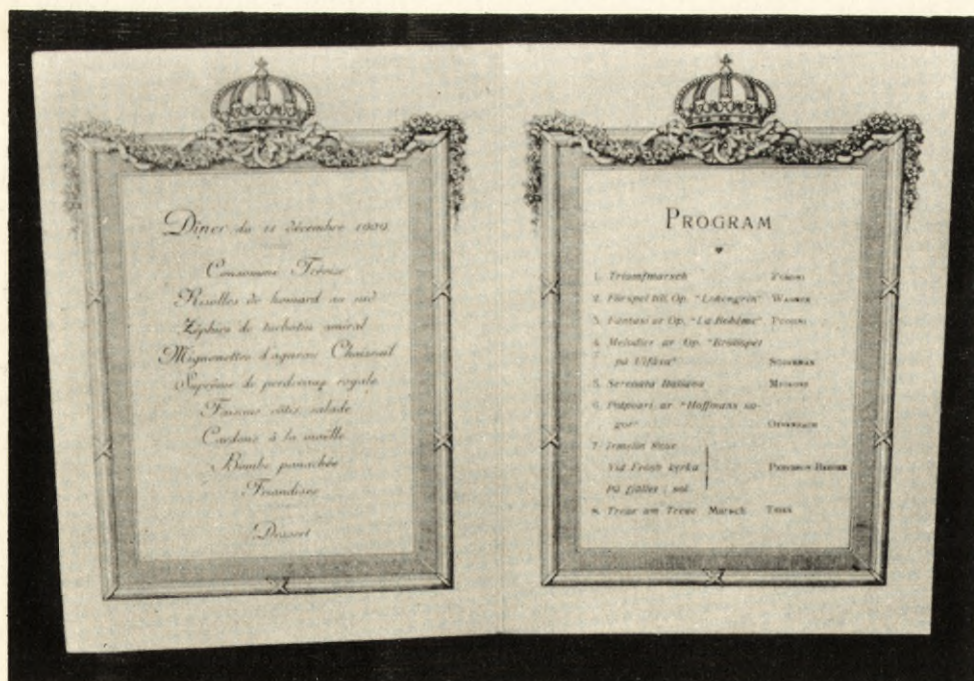 Dîner du 11 décembre 1909
Consommé
de homard au sud
Zéphirs de turbotin amiral
Mignonettes d'agneau
Suprême de perdreaux royale
Faisans rôtis, salade
Cardons à la moëlle
Bombe panachée
Friandises
Dessert
PROGRAM
1. Triumfmarsch
2. Förspel till Op. "Lohengrin" WAGNER
3. Fantasi ur Op. "La Bohême" PUCCINI
4. Melodier ur Op. "Bröllopet
på Ulfåsa" SÖDERMAN
5. Serenata Italiana
6. Potpouri ur "Hoffmans sa-
gor" OFFENBACH
7. Irmelin Rose
Vid Frösö kyrka PETERSON-BERGER
på fjället i sol
8. Treue um Treue Marsch